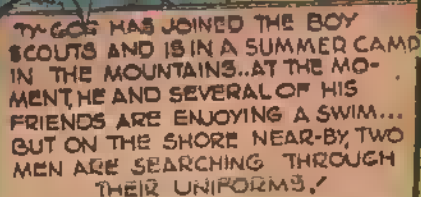 TY-GOR HAS JOINED THE BOY
SCOUTS AND IS IN A SUMMER CAMP
IN THE MOUNTAINS..AT THE MO-
MENT, HE AND SEVERAL OF HIS
FRIENDS ARE ENJOYING A SWIM...
BUT ON THE SHORE NEAR-BY, TWO
MEN ARE SEARCHING THROUGH
THEIR UNIFORMS!